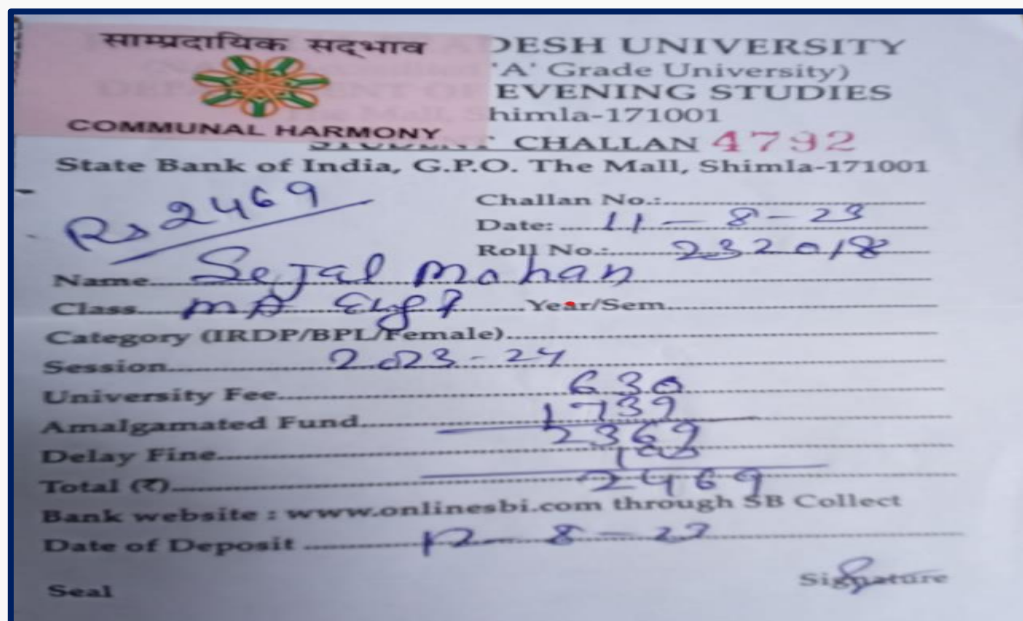 साम्प्रदायिक सद्भाव
COMMUNAL HARMONY
DESH UNIVERSITY
'A' Grade University)
EVENING STUDIES
The Mall, Shimla-171001
STUDENT CHALLAN 4792
State Bank of India, G.P.O. The Mall, Shimla-171001
Rs 2469
Challan No.:
Date: 11-8-23
Roll No.: 232018
Name Sejal Mohan
Class MA Year/Sem
Category (IRDP/BPL/Female)
Session 2023-24
University Fee 630
Amalgamated Fund 1739
2369
Delay Fine 100
Total (₹) 2469
Bank website : www.onlinesbi.com through SB Collect
Date of Deposit 12-8-23
Seal Signature